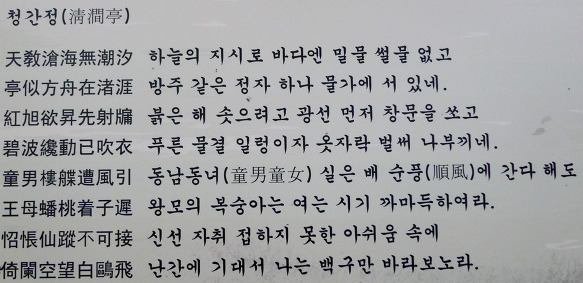 청간정(淸澗亭)
天敎滄海無潮汐 하늘의 지시로 바다엔 밀물 썰물 없고
亭似方舟在渚涯 방주 같은 정자 하나 물가에 서 있네.
紅旭欲昇先射牖 붉은 해 솟으려고 광선 먼저 창문을 쏘고
碧波纔動已吹衣 푸른 물결 일렁이자 옷자락 벌써 나부끼네.
童男樓艓遭風引 동남동녀(童男童女) 실은 배 순풍(順風)에 간다 해도
王母蟠桃着子遲 왕모의 복숭아는 여는 시기 까마득하여라.
怊悵仙蹤不可接 신선 자취 접하지 못한 아쉬움 속에
倚闌空望白鷗飛 난간에 기대서 나는 백구만 바라보노라.